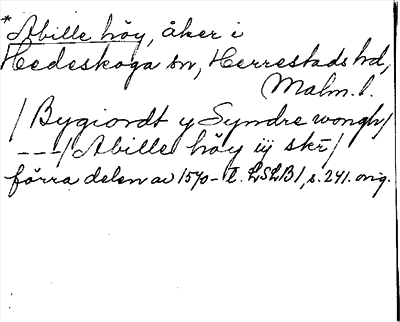 *Abille höy, åker i
Hedeskoga sn, Herrestads hd,
Malm. l.
/ Bygiordt y Syndre wongh /
---/ Abille höy iij skr /
förra delen av 1570-t. LSLB1, s. 241. orig.